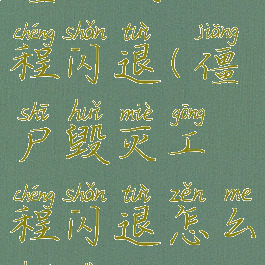 chéng shǎn tuì jiāng
程闪退(僵
shī huǐ miè gōng
尸毁灭工
chéng shǎn tuì zěn me
程闪退怎么